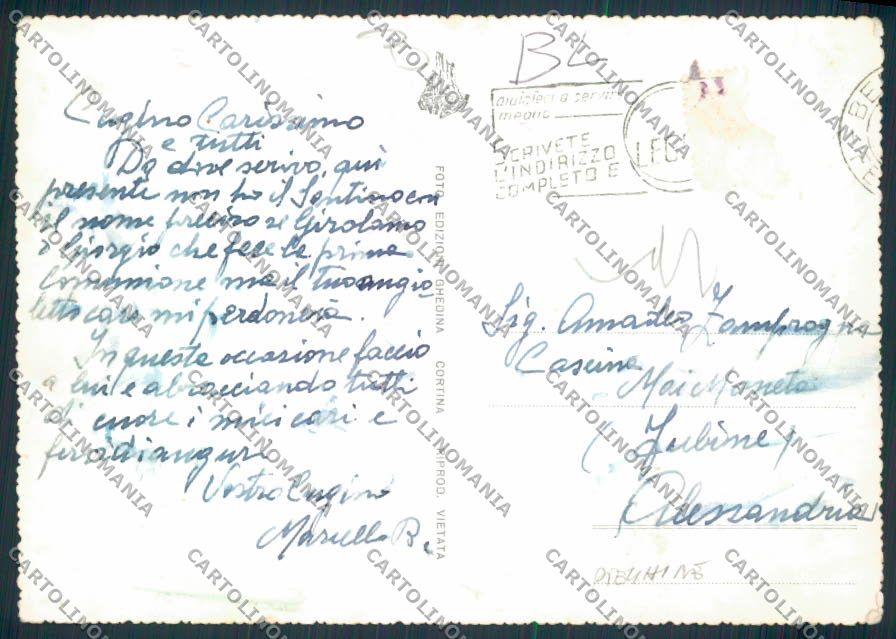 Cugino Carissimo
e tutti
Da dove scrivo, qui
presente non ho il Santino con
il nome preciso se Girolamo
o Giorgio che fece la prima
comunione ma il tuo angio
letto caro mi perdonerà.
In questa occasione faccio
a lui e abbracciando tutti
di cuore i miei cari e
Vostro Cugino
Marcello B.
FOTO EDIZIONI GHEDINA CORTINA RIPROD. VIETATA
BL
aiutateci a servirvi
meglio
SCRIVETE
L'INDIRIZZO
COMPLETO E
LEG
Sig. Amadeo Zamprogna
Cascina
(Fubine)
Alessandria
CARTOLINOMANIA